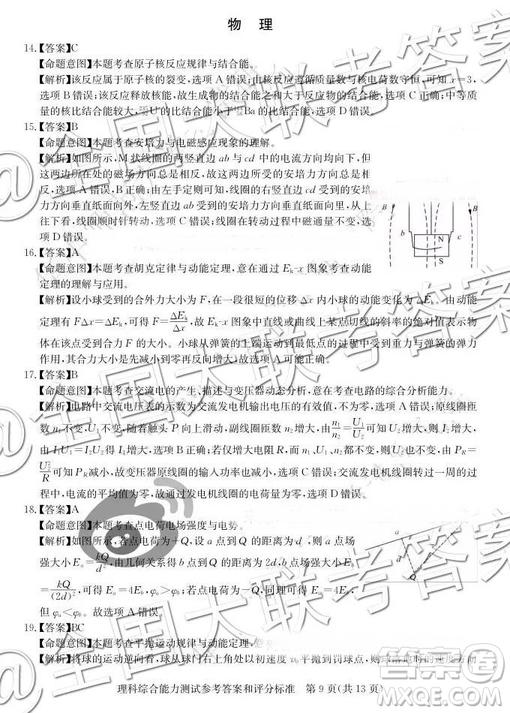 物 理
14.【答案】C
【命题意图】本题考查原子核反应规律与结合能。
【解析】该反应属于原子核的裂变，选项 A 错误；由核反应遵循质量数与核电荷数守恒，可知 x=3，
选项 B 错误；核反应放出能量，故生成物的结合能之和大于反应物的结合能，选项 C 正确；中等质
量的核比结合能较大，U的比结合能小于Ba的比结合能，选项 D 错误。
15.【答案】B
【命题意图】本题考查安培力与电磁感应现象的理解。
【解析】如图所示，M 状线圈的两竖直边 ab 与 cd 中的电流方向均向下，但
这两边所在处的磁场方向相反，故这两边受到的安培力方向相
反，选项 A 错误，B 正确；由左手定则可知，线圈的右竖直边 cd 受到的安培
力方向垂直纸面向外，左竖直边 ab 受到的安培力方向垂直纸面向里，从上
往下看，线圈顺时针转动，选项 C 错误；线圈在转动过程中磁通量不变，选
项 D 错误。
16.【答案】A
【命题意图】本题考查胡克定律与动能定理，意在通过 Eₖ-x 图象考查动能
定理的理解与应用。
【解析】设小球受到的合外力大小为 F，在一段很短的位移 Δx 内小球的动能变化为 ΔEₖ，由动能
定理有 FΔx=ΔEₖ，可得 F=ΔEₖ/Δx，故 Eₖ-x 图象中直线或曲线上某点切线的斜率的绝对值表示物
体在该点受到合力 F 的大小。小球从弹簧的上端运动到最低点的过程中受到重力与弹簧的弹力
作用，其合力大小是先减小到零再反向增大，故选项 A 可能正确。
17.【答案】B
【命题意图】本题考查交流电的产生、描述与变压器动态分析，意在考查电路的综合分析能力。
【解析】电路中交流电压表的示数为交流发电机输出电压的有效值，不为零，选项 A 错误；原线圈匝
数 n₁ 不变，U₁ 不变，随着触头 P 向上滑动，副线圈匝数 n₂ 增大，由n₁/n₂=U₁/U₂可知 U₂ 增大，则 I₂ 增大，
由 I₁U₁=I₂U₂ 得 I₁ 增大，选项 B 正确；若仅增大电阻 R，而 n₁、n₂ 不变，则 U₁ 与 U₂ 也不变，由 P=
U₂²/R可知 P 减小，故变压器原线圈的输入功率也减小，选项 C 错误；交流发电机线圈转过一周的过程
中，电流的平均值为零，故通过发电机线圈的电荷量为零，选项 D 错误。
18.【答案】A
【命题意图】本题考查点电荷电场强度与电势。
【解析】如图所示，若点电荷为+Q，设 a 点到 Q 的距离为 d，则 a 点场
强大小 Eₐ=kQ/d²，由几何关系得 b 点到 Q 的距离为 2d，b 点场强大小
kQ/(2d)²，可得 Eₐ=4E_b，φₐ>φ_b；若点电荷为－Q，同理可得 Eₐ=4E_b，
但 φₐ<φ_b。故选项 A 错误。
19.【答案】BC
【命题意图】本题考查平抛运动规律与动能定理。
【解析】将球的运动逆向看，球从球门右上角处以初速度 平抛到罚球点，则球在竖直方向的速度方
理科综合能力测试参考答案和评分标准 第 9 页(共 13 页)